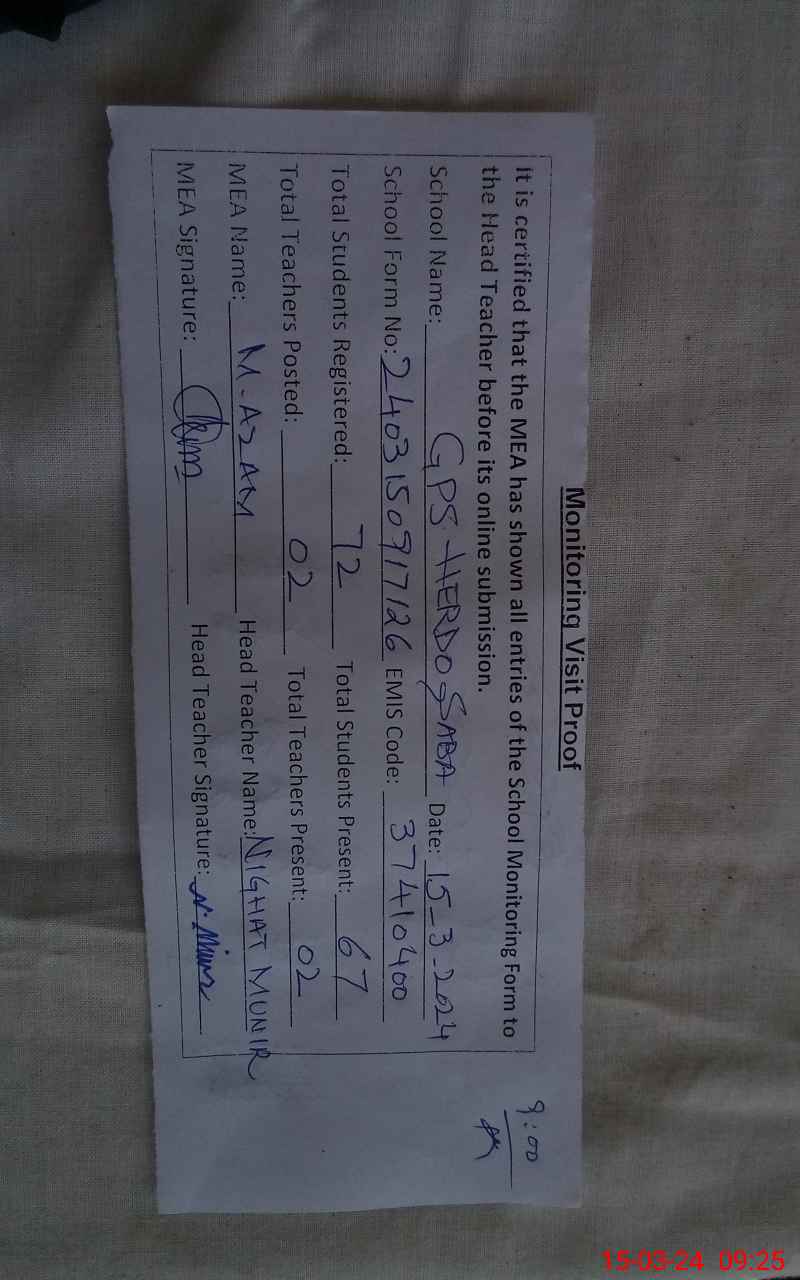 Monitoring Visit Proof
It is certified that the MEA has shown all entries of the School Monitoring Form to
the Head Teacher before its online submission.
School Name: GPS HERDO SABA Date: 15-3-2024
School Form No: 2403150917126 EMIS Code: 37410400
Total Students Registered: 72 Total Students Present: 67
Total Teachers Posted: 02 Total Teachers Present: 02
MEA Name: M-AZAM Head Teacher Name: NIGHAT MUNIR
MEA Signature: Head Teacher Signature:
9:00
15-03-24 09:25